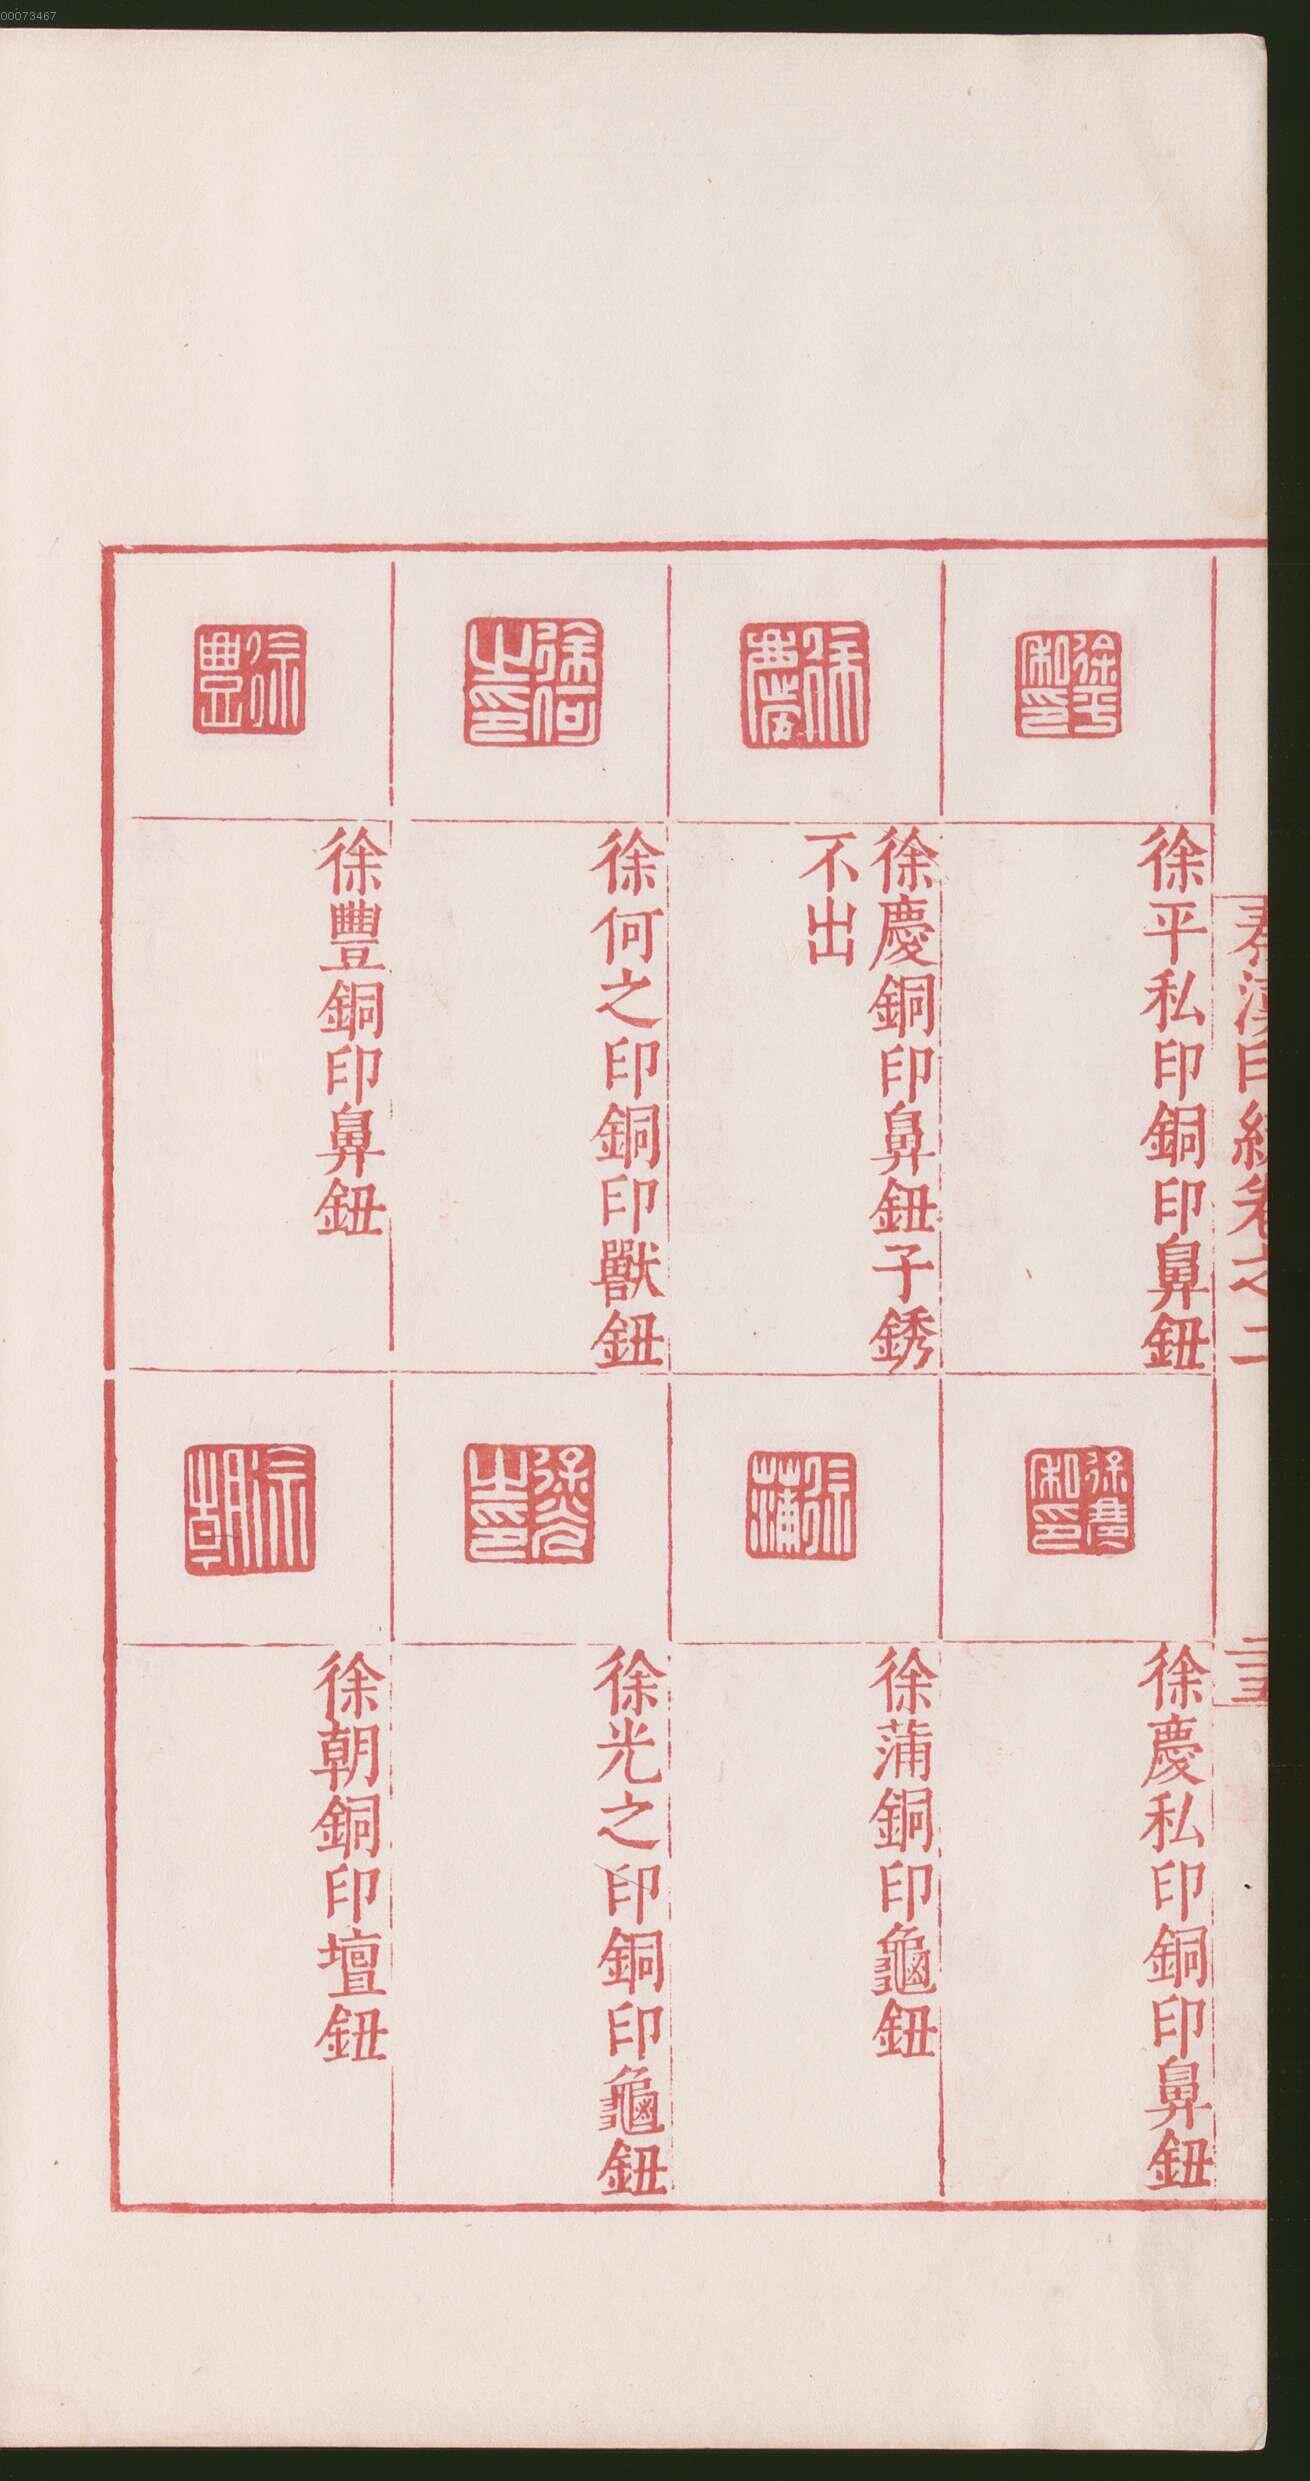 00073467
秦漢印統卷之二
徐平私印銅印鼻鈕
徐慶銅印鼻鈕子銹
不出
徐何之印銅印獸鈕
徐豐銅印鼻鈕
徐慶私印銅印鼻鈕
徐蒲銅印龜鈕
徐光之印銅印龜鈕
徐朝銅印壇鈕
徐平私印
徐慶
徐何之印
徐豐
徐慶私印
徐蒲
徐光之印
徐朝